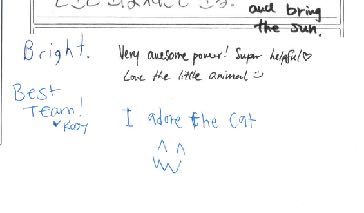 and bring
the sun.
Bright.
Very awesome power! Super helpful♡
Love the little animal
Best
Team!
I adore the cat